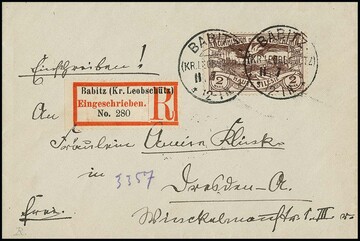 Einschreiben!
BABITZ
(KR. LEOBSCHÜTZ)
BABITZ
(KR. LEOBSCHÜTZ)
2 2
Babitz (Kr. Leobschütz)
Eingeschrieben.
No. 280
R
An
Fräulein
in
3357
Dresden-A.
frei.
Winckelmannstr. 1. III r.